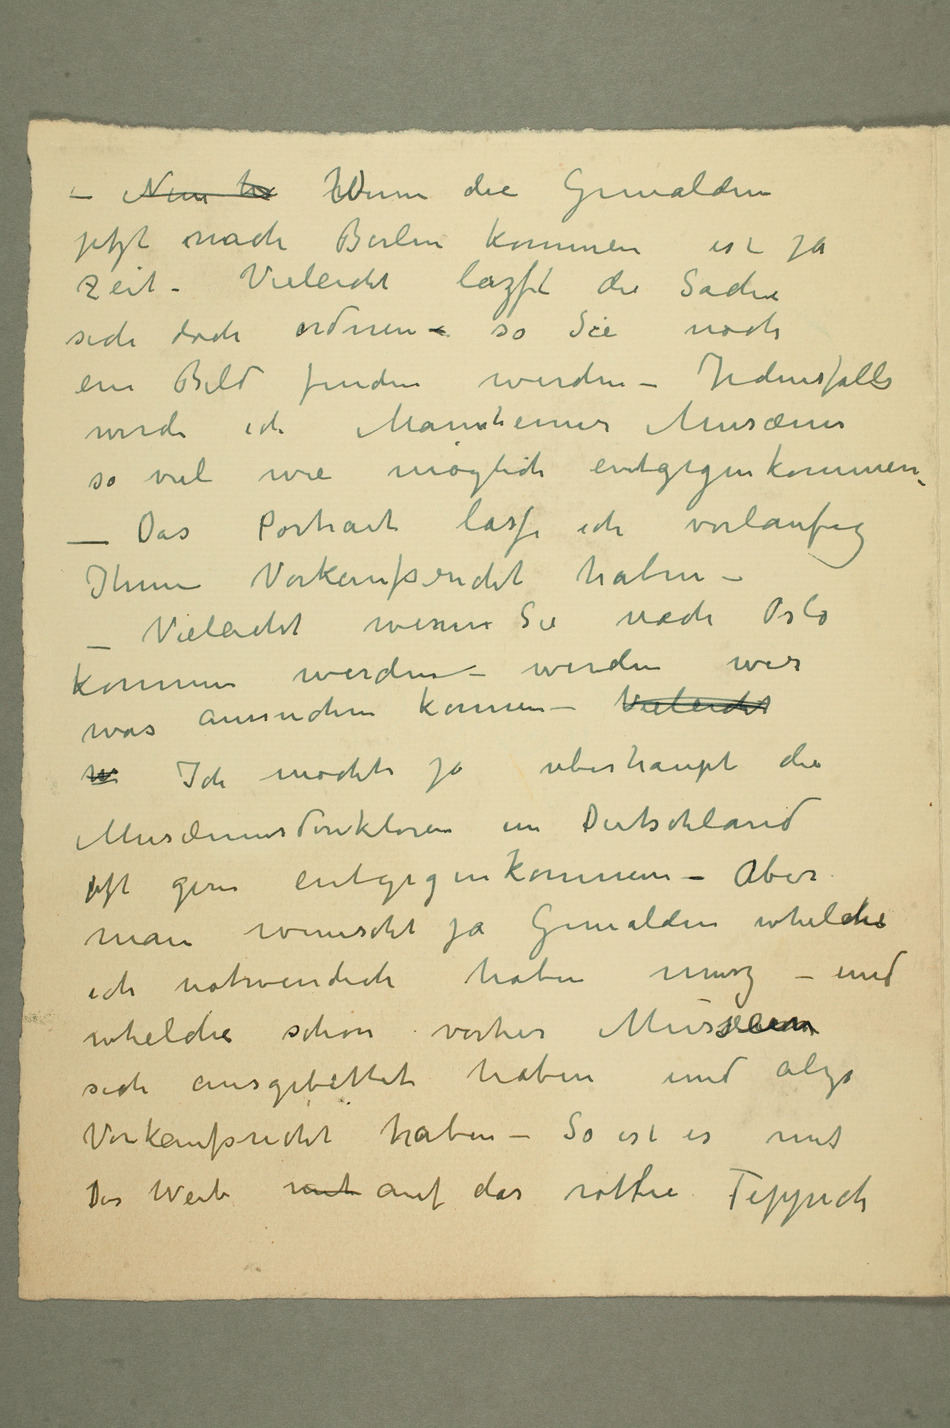 – Nun h Wenn die Gemälden
jetzt nach Berlin kommen ist ja
Zeit – Vieleicht lazft die Sache
sich doch ordnen – so Sie noch
ein Bild finden werden – Jedensfalls
werde ich Mannheimer Musæum
so viel wie möglich entgegenkommen
– Das Portrait lasse ich vorlaufig
Ihnen Vorkaufsrecht haben –
– Vieleicht wenn Sie nach Oslo
kommen werden – werden wir
was ausrichten konnen – Vieleicht
w Ich mochte ja uberhaupt die
Musæumsdirektoren in Deutschland
oft gern entgegenkommen – Aber
man wunscht ja Gemälden whelche
ich notwendich haben musz – und
whelche schon vorher Musæen
sich ausgebittet haben und alzo
Vorkaufsrecht haben – So ist es mit
Das Weib mit auf das rothe Teppich